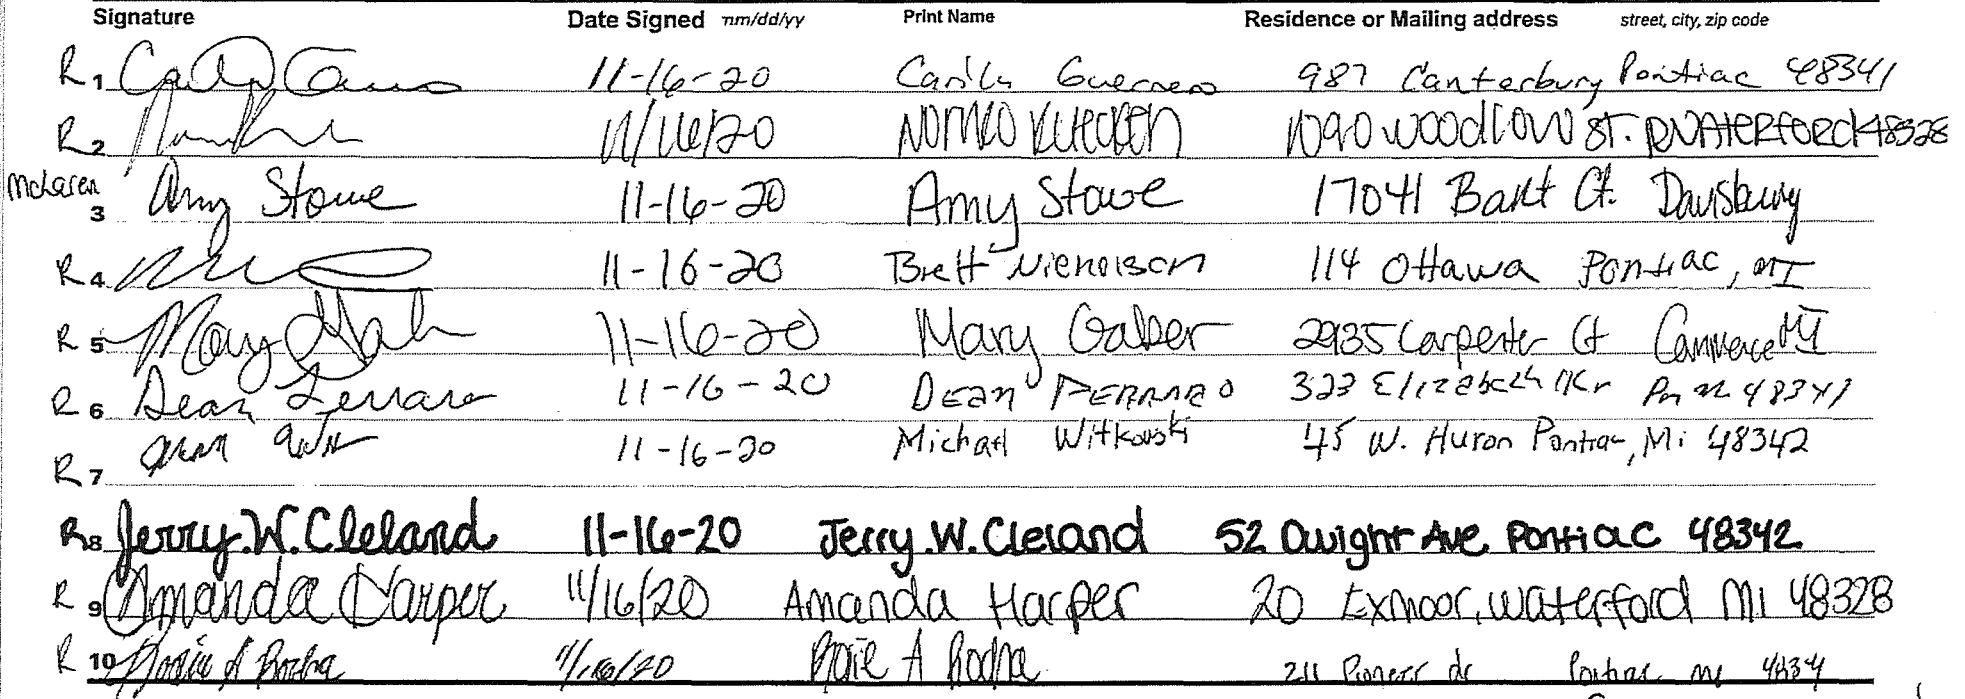 Signature Date Signed nm/dd/yy Print Name Residence or Mailing address street, city, zip code
R 1 11-16-20 Guerrero 987 Canterbury Pontiac 48341
R 2 11/16/20 1090 woodlow ST. WATERFORd 48328
McLaren 3 Amy Stowe 11-16-20 Amy Stowe 17041 Bart Ct. Davisburg
R 4 11-16-20 Brett Nicholson 114 Ottawa Pontiac, MI
R 5 Mary 11-16-20 Mary Gaber 2935 Carpenter Ct Commerce MI
R 6 Dean Ferraro 11-16-20 DEAN FERRARO 323 Elizabeth 48341
R 7 11-16-20 Michael Witkowski 45 W. Huron Pontiac, Mi 48342
R 8 Jerry.W.Cleland 11-16-20 Jerry.W.Cleland 52 Dwight Ave Pontiac 48342
R 9 Amanda Harper 11/16/20 Amanda Harper 20 Exmoor, Waterford Mi 48328
R 10 A 11/16/20 A 211 Pioneer dr Pontiac mi 4834